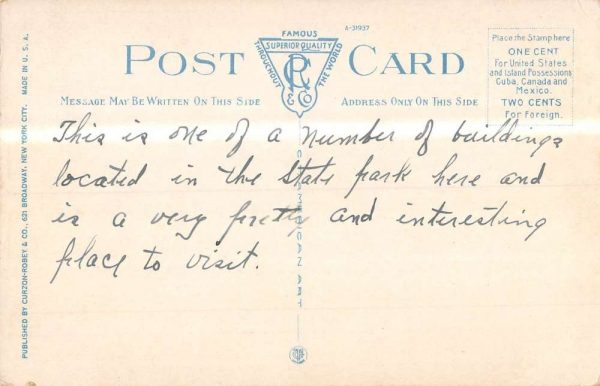 A-31937
POST CARD
FAMOUS
SUPERIOR QUALITY
THROUGHOUT THE WORLD
CR & CO
Place the Stamp here
ONE CENT
For United States
and Island Possessions
Cuba, Canada and
Mexico.
TWO CENTS
For Foreign.
MESSAGE MAY BE WRITTEN ON THIS SIDE
ADDRESS ONLY ON THIS SIDE
This is one of a number of buildings
located in the State park here and
is a very pretty and interesting
place to visit.
PUBLISHED BY CURZON-ROBEY & CO., 621 BROADWAY, NEW YORK CITY. MADE IN U. S. A.
ART